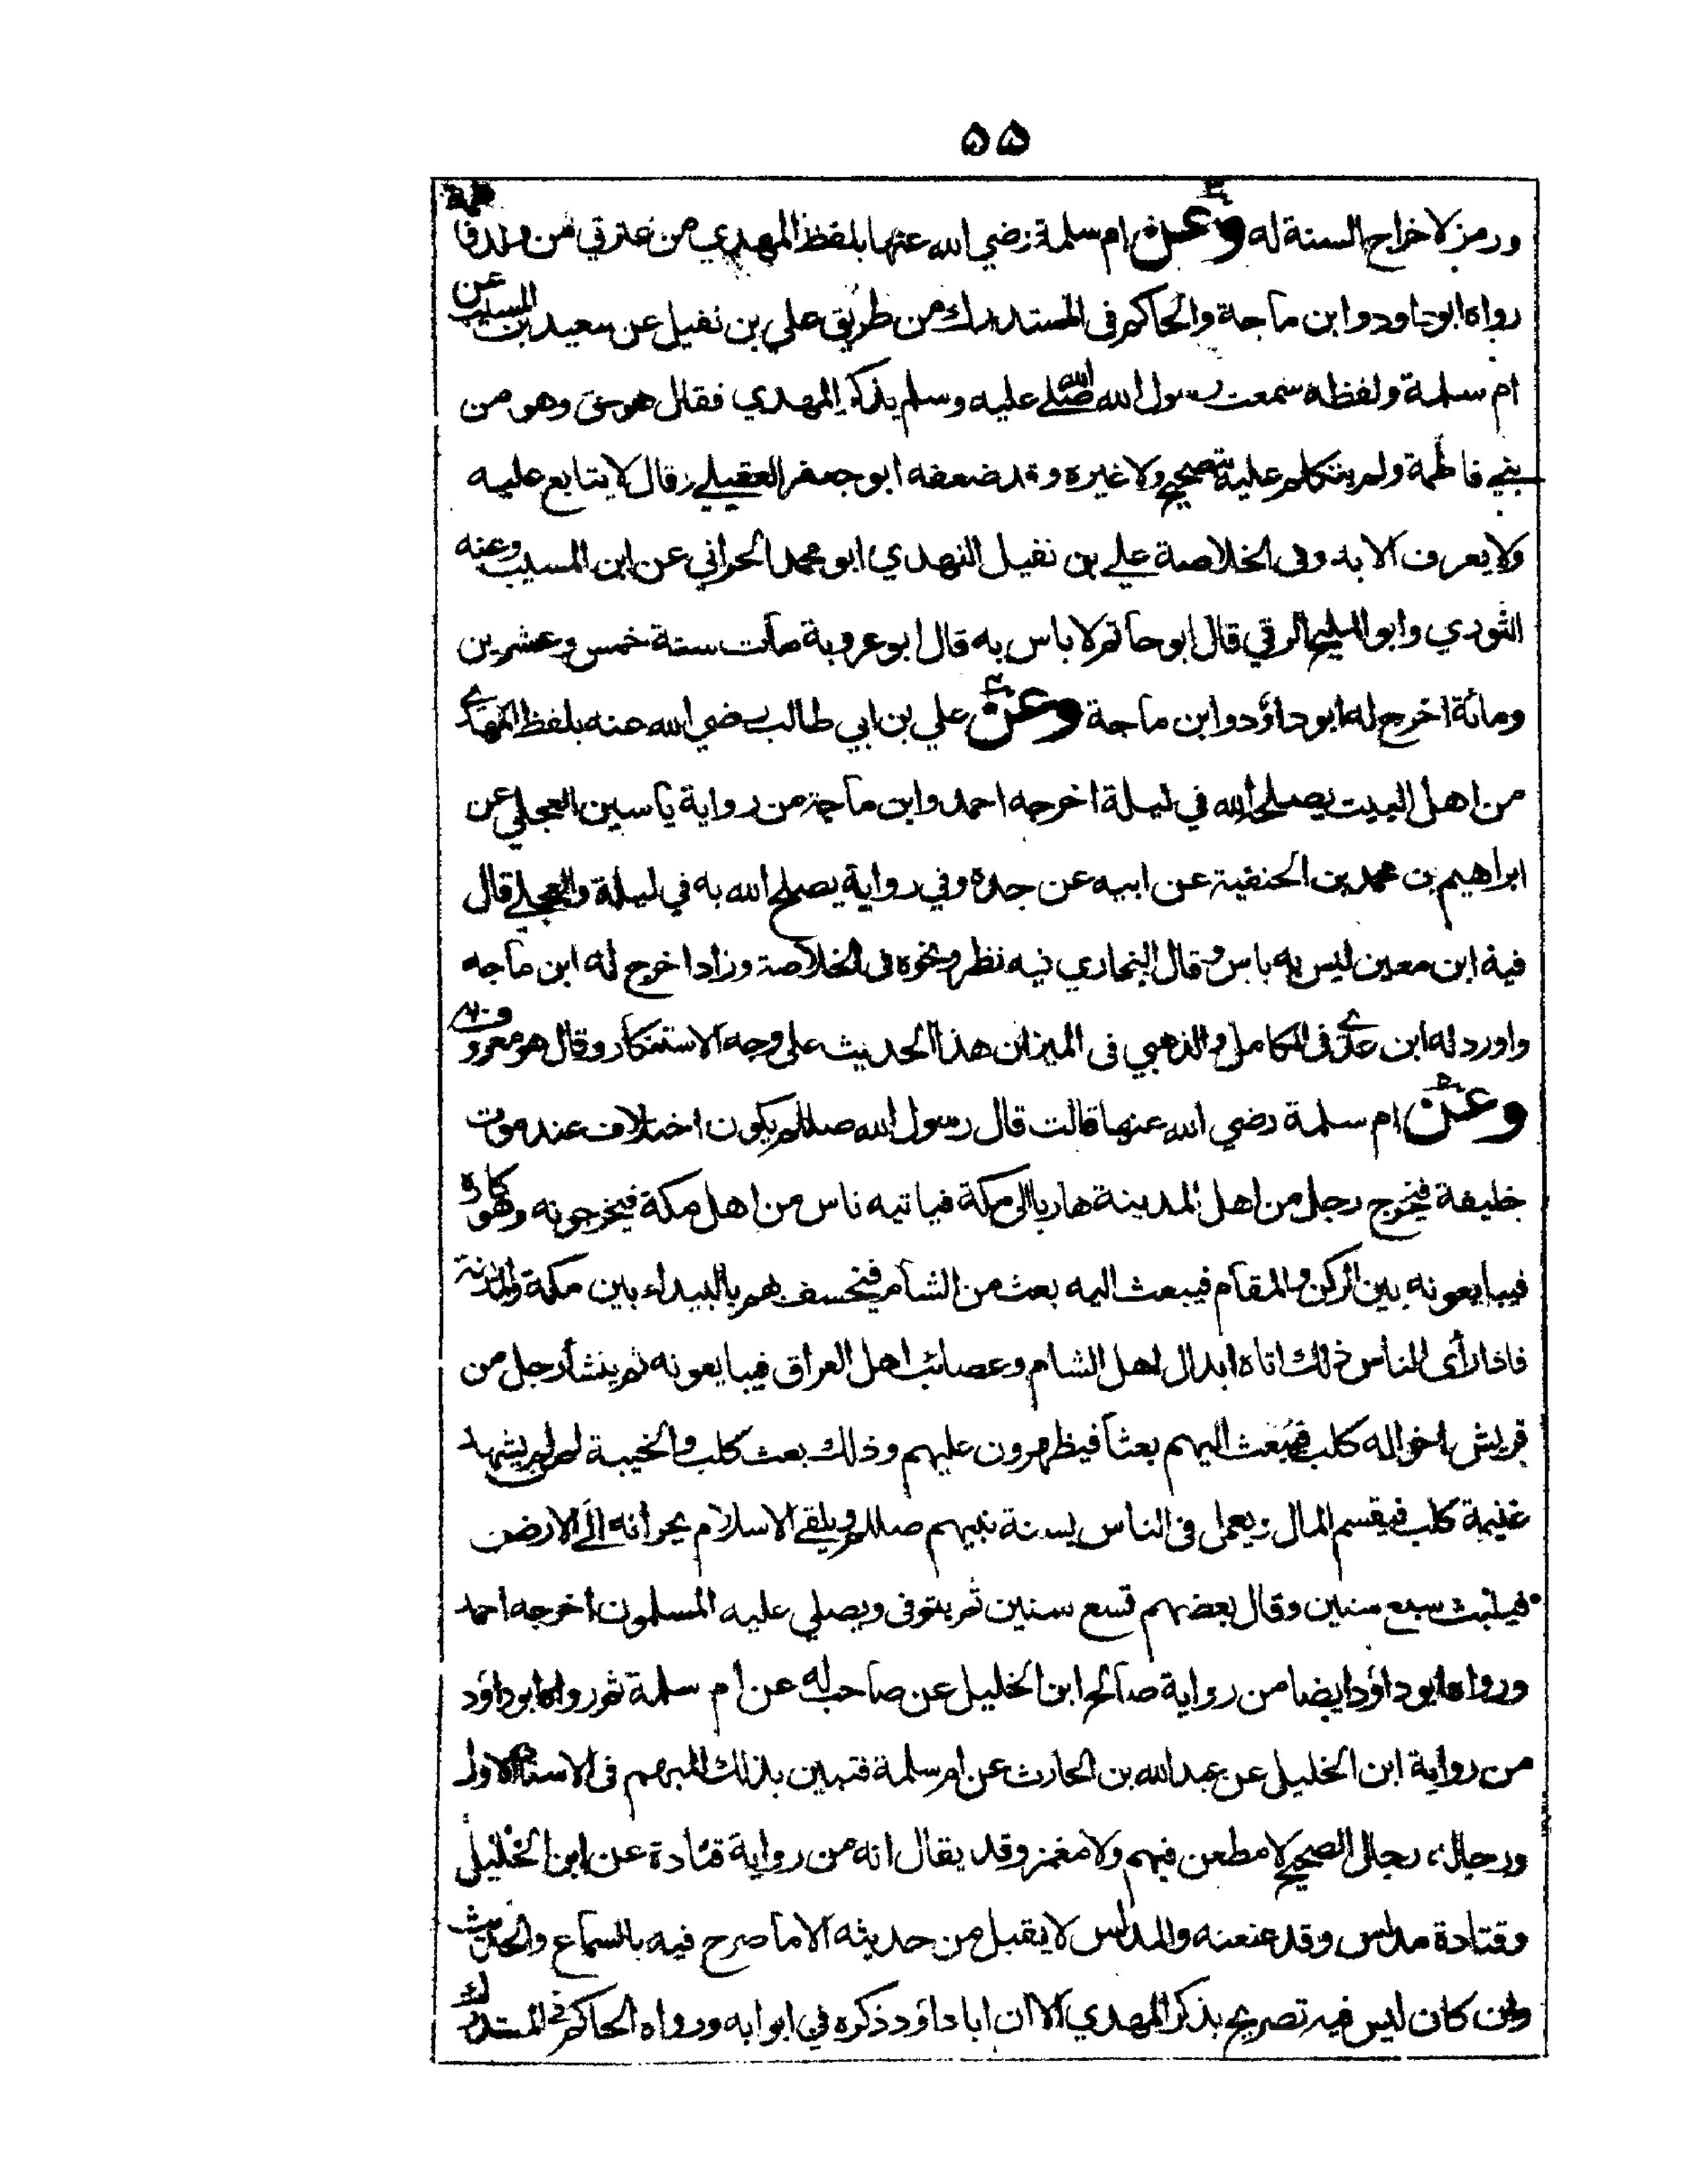 ۵۵
ورمز لاخراج الستة له وعن ام سلمة رضي الله عنها بلفظ المهدي من عترتي من ولد فاطمة
رواه ابو داود وابن ماجة والحاكم فى المستدرك من طريق علي بن نفيل عن سعيد بن المسيب عن
ام سلمة ولفظه سمعت رسول الله صلى الله عليه وسلم يذكر المهدي فقال هو حق وهو من
بني فاطمة ولم يتكلم عليه بتصحيح ولا غيره وقد ضعفه ابو جعفر العقيلي وقال لا يتابع عليه
ولا يعرف الا به وفى الخلاصة علي بن نفيل النهدي ابو محمد الحراني عن ابن المسيب وعنه
الثوري وابو المليح الرقي قال ابو حاتم لا باس به قال ابو عروبة مات سنة خمس وعشرين
ومائة اخرج له ابو داؤد وابن ماجة وعن علي بن ابي طالب رضي الله عنه بلفظ المهدي
من اهل البيت يصلح الله في ليلة اخرجه احمد وابن ماجة من رواية ياسين العجلي عن
ابراهيم بن محمد بن الحنفية عن ابيه عن جده وفي رواية يصلح الله به في ليلة والعجلي قال
فيه ابن معين ليس به باس وقال البخاري فيه نظر ونحوه فى الخلاصة وزاد اخرج له ابن ماجه
واورد له ابن عدي فى الكامل والذهبي فى الميزان هذا الحديث على وجه الاستنكار وقال هو معروف به
وعن ام سلمة رضي الله عنها قالت قال رسول الله صللم يكون اختلاف عند موت
خليفة فيخرج رجل من اهل المدينة هاربا الى مكة فياتيه ناس من اهل مكة فيخرجونه وهو كاره
فيبايعونه بين الركن والمقام فيبعث اليه بعث من الشام فيخسف بهم بالبيداء بين مكة والمدينة
فاذا رأى الناس ذلك اتاه ابدال اهل الشام وعصائب اهل العراق فيبايعونه ثم ينشأ رجل من
قريش اخواله كلب فيبعث اليهم بعثا فيظهرون عليهم وذلك بعث كلب والخيبة لمن لم يشهد
غنيمة كلب فيقسم المال ويعمل فى الناس بسنة نبيهم صللم ويلقي الاسلام بجرانه الى الارض
فيلبث سبع سنين وقال بعضهم تسع سنين ثم يتوفى ويصلي عليه المسلمون اخرجه احمد
ورواه ابو داؤد ايضا من رواية صالح ابن الخليل عن صاحب له عن ام سلمة ثم رواه ابو داؤد
من رواية ابن الخليل عن عبد الله بن الحارث عن ام سلمة فتبين بذلك المبهم فى الاسناد الاول
ورجاله رجال الصحيح لا مطعن فيهم ولا مغمز وقد يقال انه من رواية قتادة عن ابن الخليل
وقتادة مدلس وقد عنعنه والمدلس لا يقبل من حديثه الا ما صرح فيه بالسماع والحديث
وان كان ليس فيه تصريح بذكر المهدي الا ان ابا داؤد ذكره في ابوابه ورواه الحاكم فى المستدرك